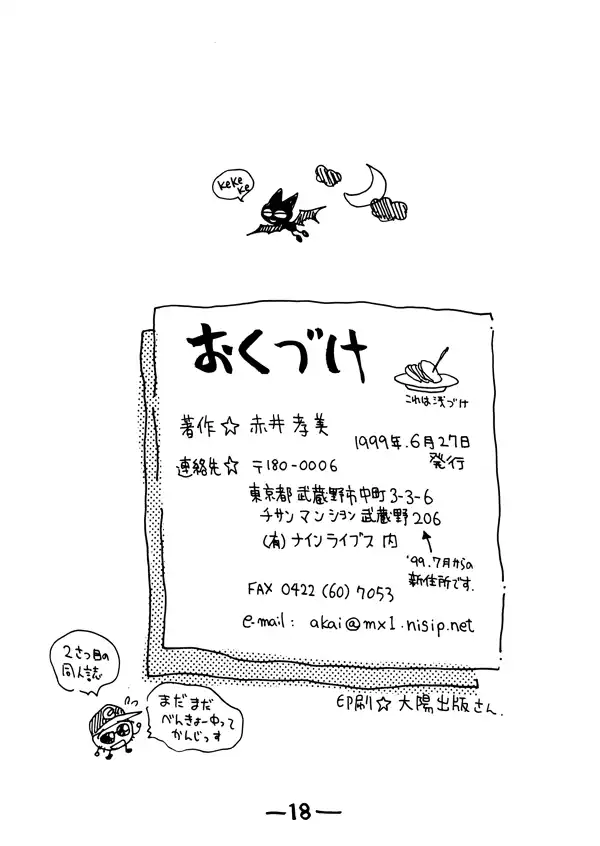 KeKe
Ke
おくづけ
これは浅づけ
著作☆ 赤井孝美
1999年.6月27日
発行
連絡先☆ 〒180-0006
東京都武蔵野市中町3-3-6
チサンマンション武蔵野206
(有)ナインライブス内
'99.7月からの
新住所です.
FAX 0422(60)7053
e-mail: akai@mx1.nisip.net
2さつ目の
同人誌
まだまだ
べんきょーゆって
かんじっす
印刷☆大陽出版さん.
-18-